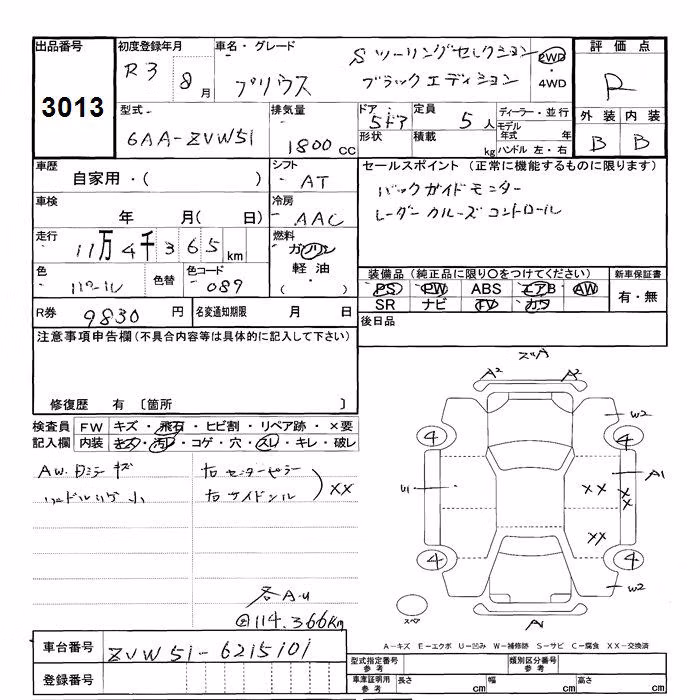 出品番号 初度登録年月 車名・グレード 評価点
3013 R3 8月 プリウス Sツーリングセレクション 2WD
ブラックエディション ・4WD R
型式 排気量 ドア 形状 定員 積載 ディーラー・並行 外装 内装
6AA-ZVW51 1800cc 5ドア 5人 kg モデル年式 年 ハンドル 左・右 B B
車歴 シフト セールスポイント(正常に機能するものに限ります)
自家用・( ) AT バックガイドモニター
車検 冷房 レーダークルーズコントロール
年 月( 日) AAC
走行 燃料
11万4千365km ガソリン
軽油
・( )
色 色替 色コード 装備品(純正品に限り○をつけてください) 新車保証書
パール 089 PS PW ABS エアB AW 有・無
SR ナビ TV カワ
R券 9830円 名変通知期限 月 日 後日品
注意事項申告欄(不具合内容等は具体的に記入して下さい)
修復歴 有 〔箇所 〕
検査員 FW キズ・飛石・ヒビ割・リペア跡・×要
記入欄 内装 キズ・汚レ・コゲ・穴・スレ・キレ・破レ
AW. キズ 右センターピラー
小 右サイドシル ) XX
各A.U
@114.366km
A2 A2
4 4 W2
U1 XX XX A1
XX
4 4 W2
スペア A1
A-キズ E-エクボ U-凹み W-補修跡 S-サビ C-腐食 XX-交換済
車台番号 ZVW51-6215101
登録番号
型式指定番号 参考 類別区分番号 参考
車庫証明用 参考 長さ cm 幅 cm 高さ cm